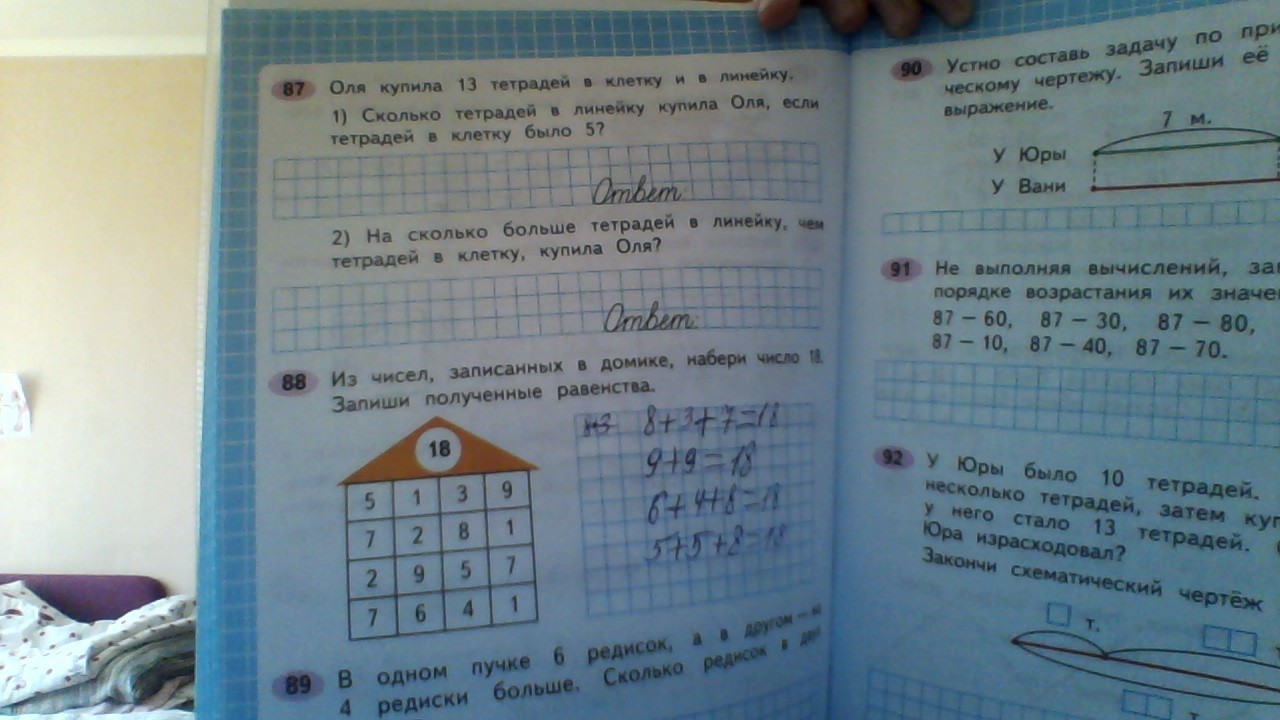 87 Оля купила 13 тетрадей в клетку и в линейку.
1) Сколько тетрадей в линейку купила Оля, если
тетрадей в клетку было 5?
Ответ
2) На сколько больше тетрадей в линейку, чем
тетрадей в клетку, купила Оля?
Ответ:
88 Из чисел, записанных в домике, набери число 18.
Запиши полученные равенства.
18
5 1 3 9
7 2 8 1
2 9 5 7
7 6 4 1
8+3+7=18
9+9=18
6+4+8=18
5+5+8=18
89 В одном пучке 6 редисок, а в другом — на
4 редиски больше. Сколько редисок в
90 Устно составь задачу по
ческому чертежу. Запиши её
выражение.
7 м.
У Юры
У Вани
91 Не выполняя вычислений,
порядке возрастания их
87 – 60, 87 – 30, 87 – 80,
87 – 10, 87 – 40, 87 – 70.
92 У Юры было 10 тетрадей.
несколько тетрадей, затем
у него стало 13 тетрадей.
Юра израсходовал?
Закончи схематический чертёж
т.
т